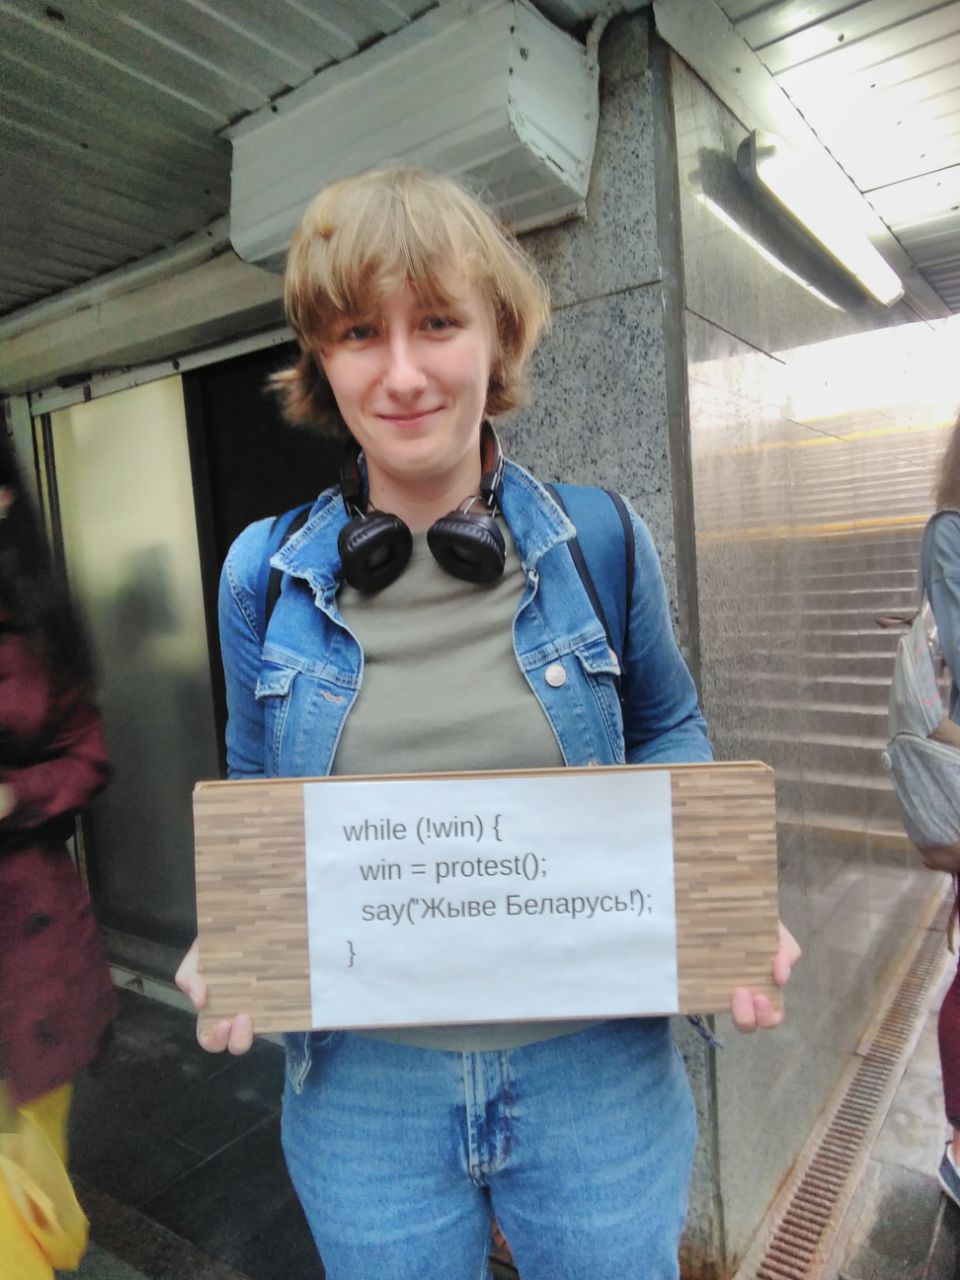 while (!win) {
win = protest();
say("Жыве Беларусь!");
}